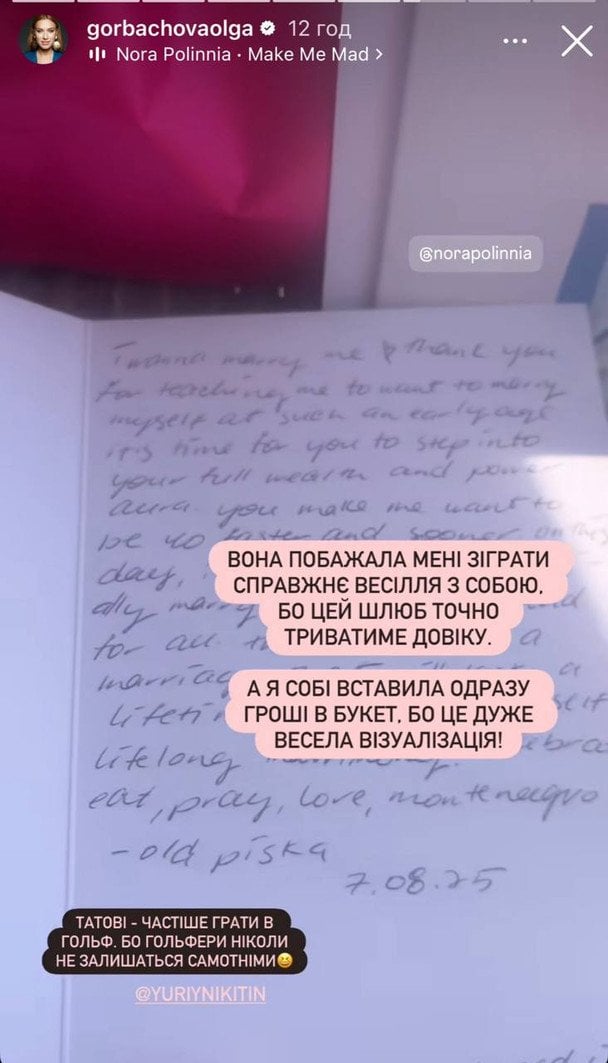 gorbachovaolga 12 год
Nora Polinnia · Make Me Mad >
@norapolinnia
I wanna marry me thank you
for teaching me to want to marry
myself at such an early age
it's time for you to step into
your full wealth and power
aura. you make me want to
be 40 faster and sooner on this
day,
ally marry
for all a
marriag a
lifeti self
lifelong ebra
eat, pray, love, montenegro
- old piska
7.08.25
ВОНА ПОБАЖАЛА МЕНІ ЗІГРАТИ
СПРАВЖНЄ ВЕСІЛЛЯ З СОБОЮ,
БО ЦЕЙ ШЛЮБ ТОЧНО
ТРИВАТИМЕ ДОВІКУ.
А Я СОБІ ВСТАВИЛА ОДРАЗУ
ГРОШІ В БУКЕТ, БО ЦЕ ДУЖЕ
ВЕСЕЛА ВІЗУАЛІЗАЦІЯ!
ТАТОВІ - ЧАСТІШЕ ГРАТИ В
ГОЛЬФ. БО ГОЛЬФЕРИ НІКОЛИ
НЕ ЗАЛИШАТЬСЯ САМОТНІМИ😆
@YURIYNIKITIN